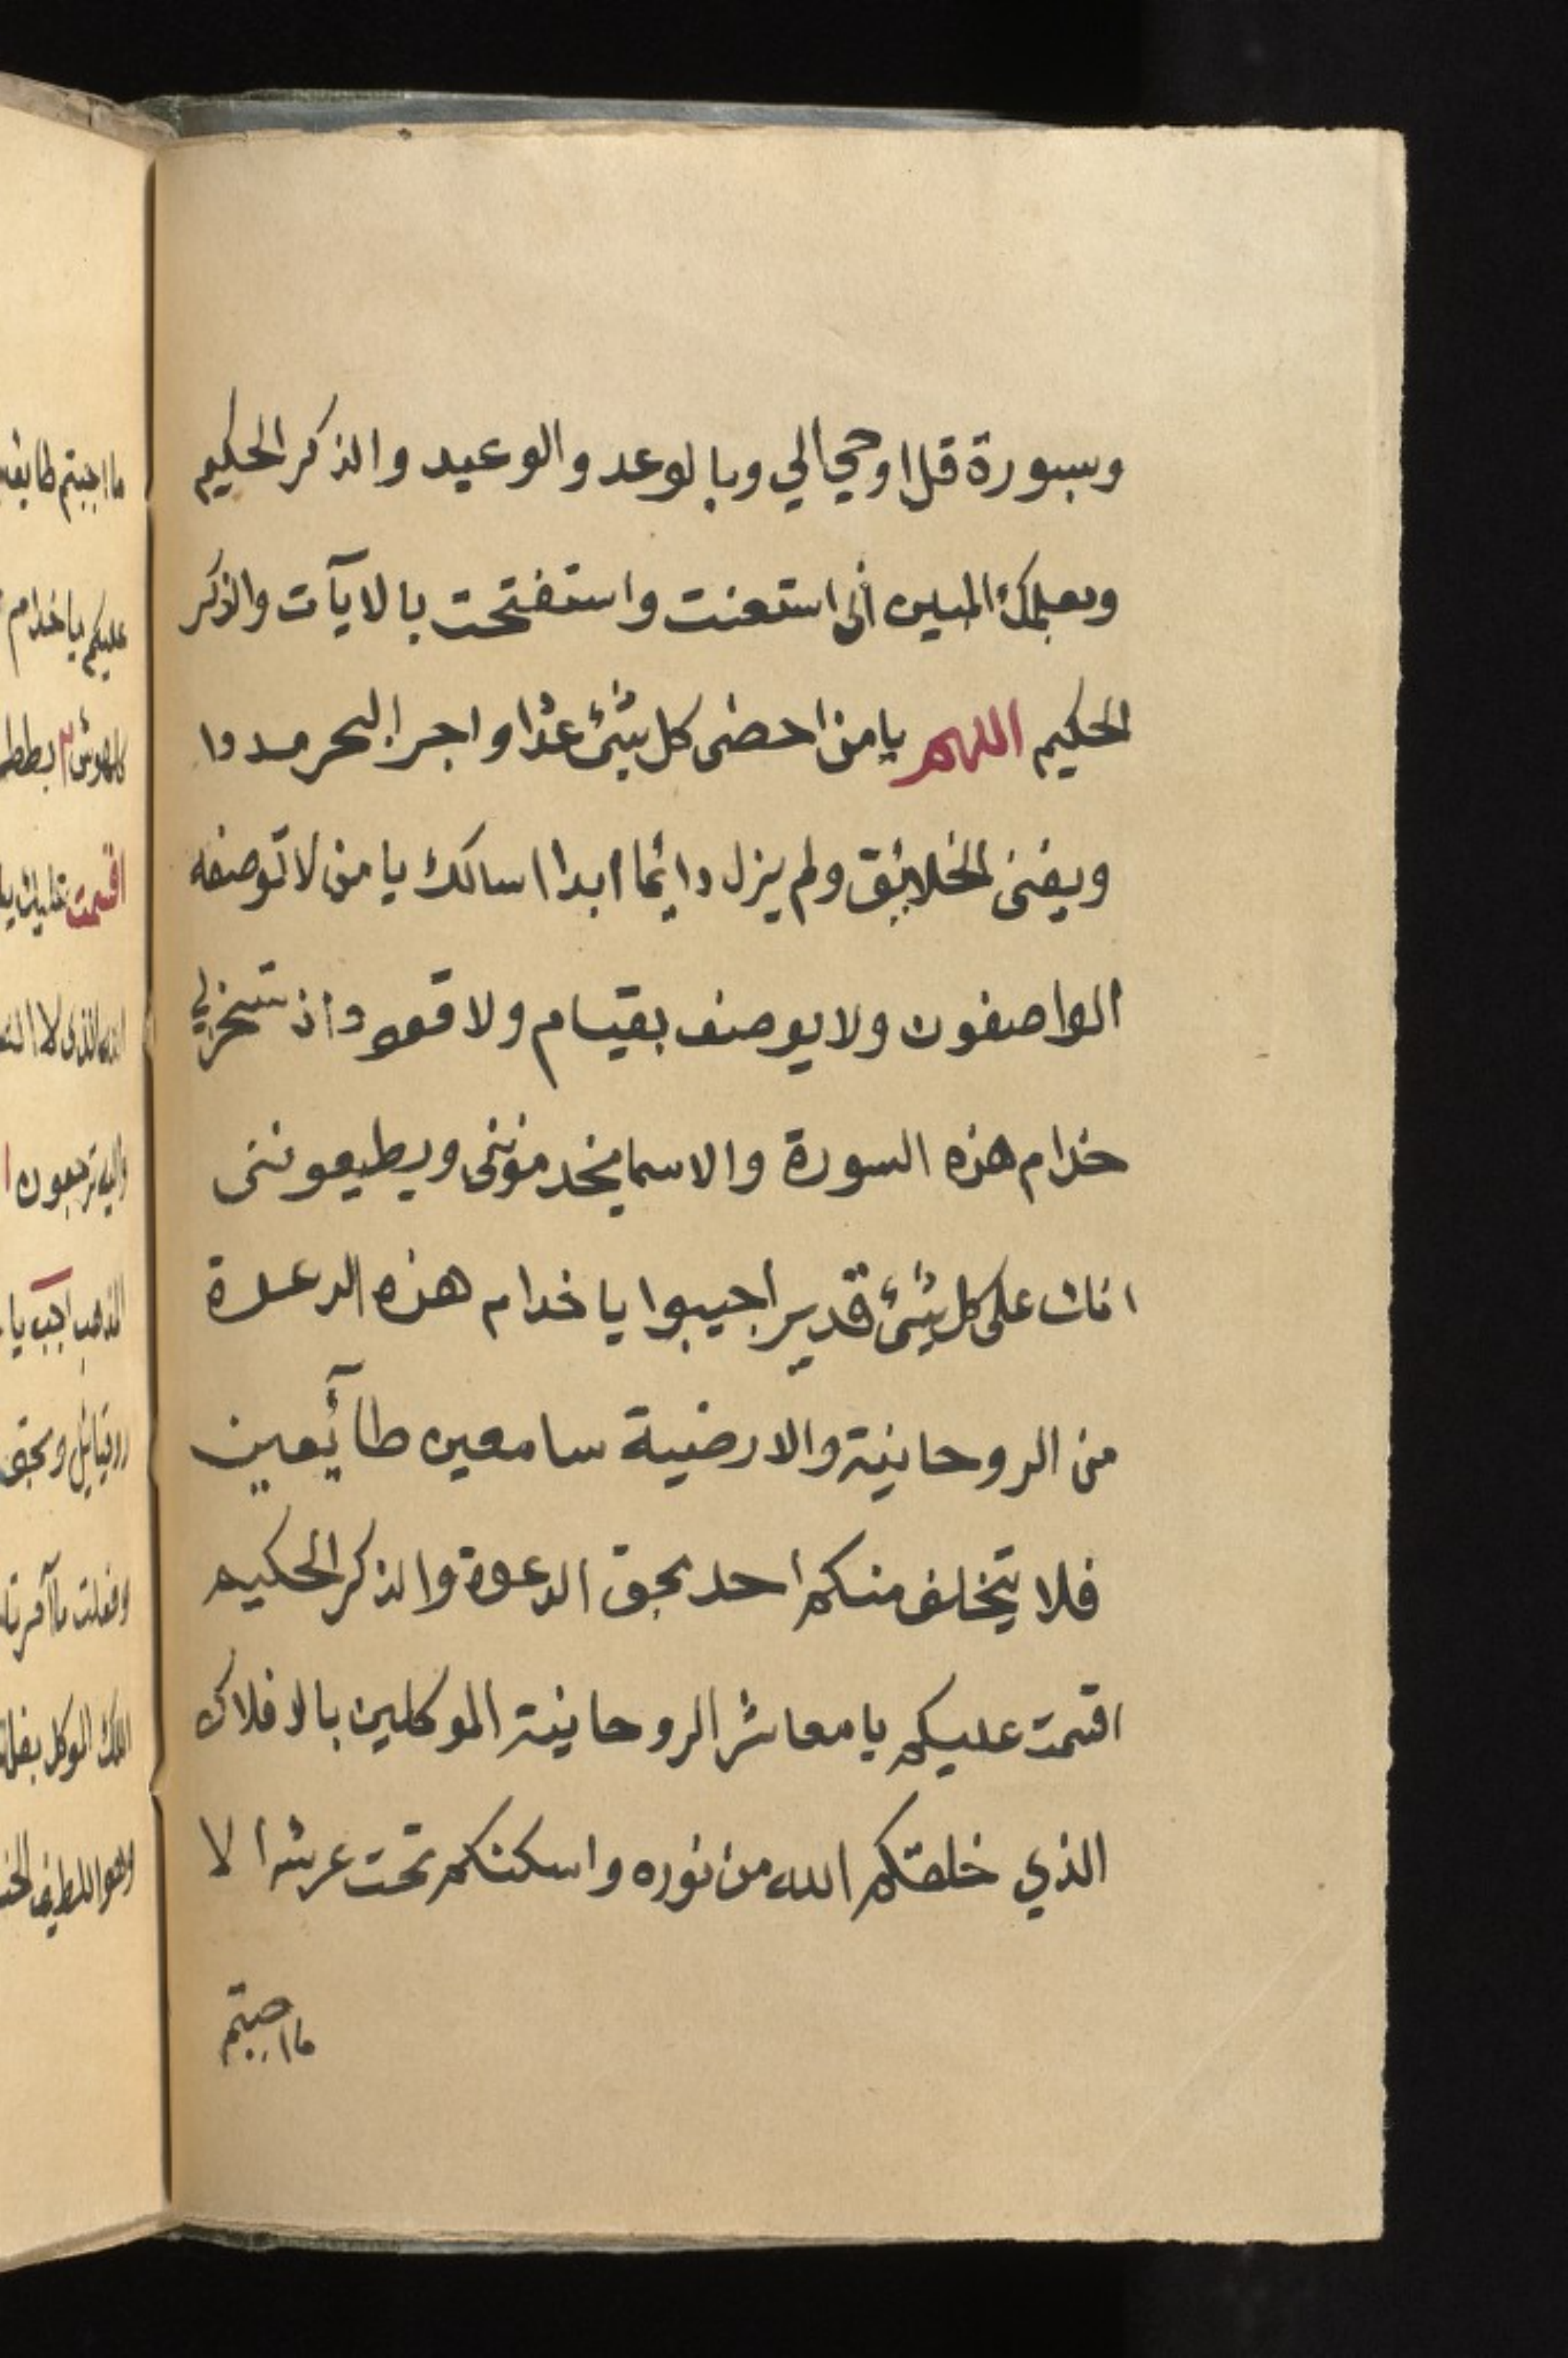 وبسورة قل اوحي الي وبالوعد والوعيد والذكر الحكيم
وبعلمك المبين أنى استعنت واستفتحت بالايآت والذكر
الحكيم اللهم يا من احضى كل شئ عددا واجر البحر مددا
ويفنى الخلائق ولم يزل دائما ابدا اسالك يا من لا توصفه
الواصفون ولا يوصف بقيام ولا قعود ان تسخر لي
خدام هذه السورة والاسما يخدمونني ويطيعونني
انك على كل شئ قدير اجيبوا يا خدام هذه الدعوة
من الروحانية والارضية سامعين طآئعين
فلا يتخلف منكم احد بحق الدعوة والذكر الحكيم
اقسمت عليكم يا معاشر الروحانية الموكلين بالافلاك
الذي خلقتكم الله من نوره واسكنكم تحت عرشه الا
ما اجبتم